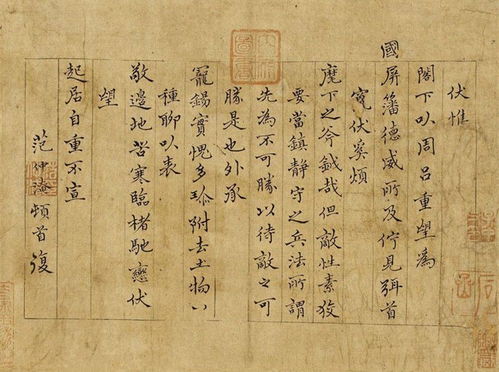 伏惟
閣下以周呂重望為
國屏藩德威所及佇見弭首
竄伏奚煩
麾下之斧鉞哉但敵性素狡
要當鎮靜守之兵法所謂
先為不可勝以待敵之可
勝是也外承
寵錫實愧多珍附去土物八
種聊以表
敬邊地苦寒臨楮馳戀伏
望
起居自重不宣
范仲淹頓首復